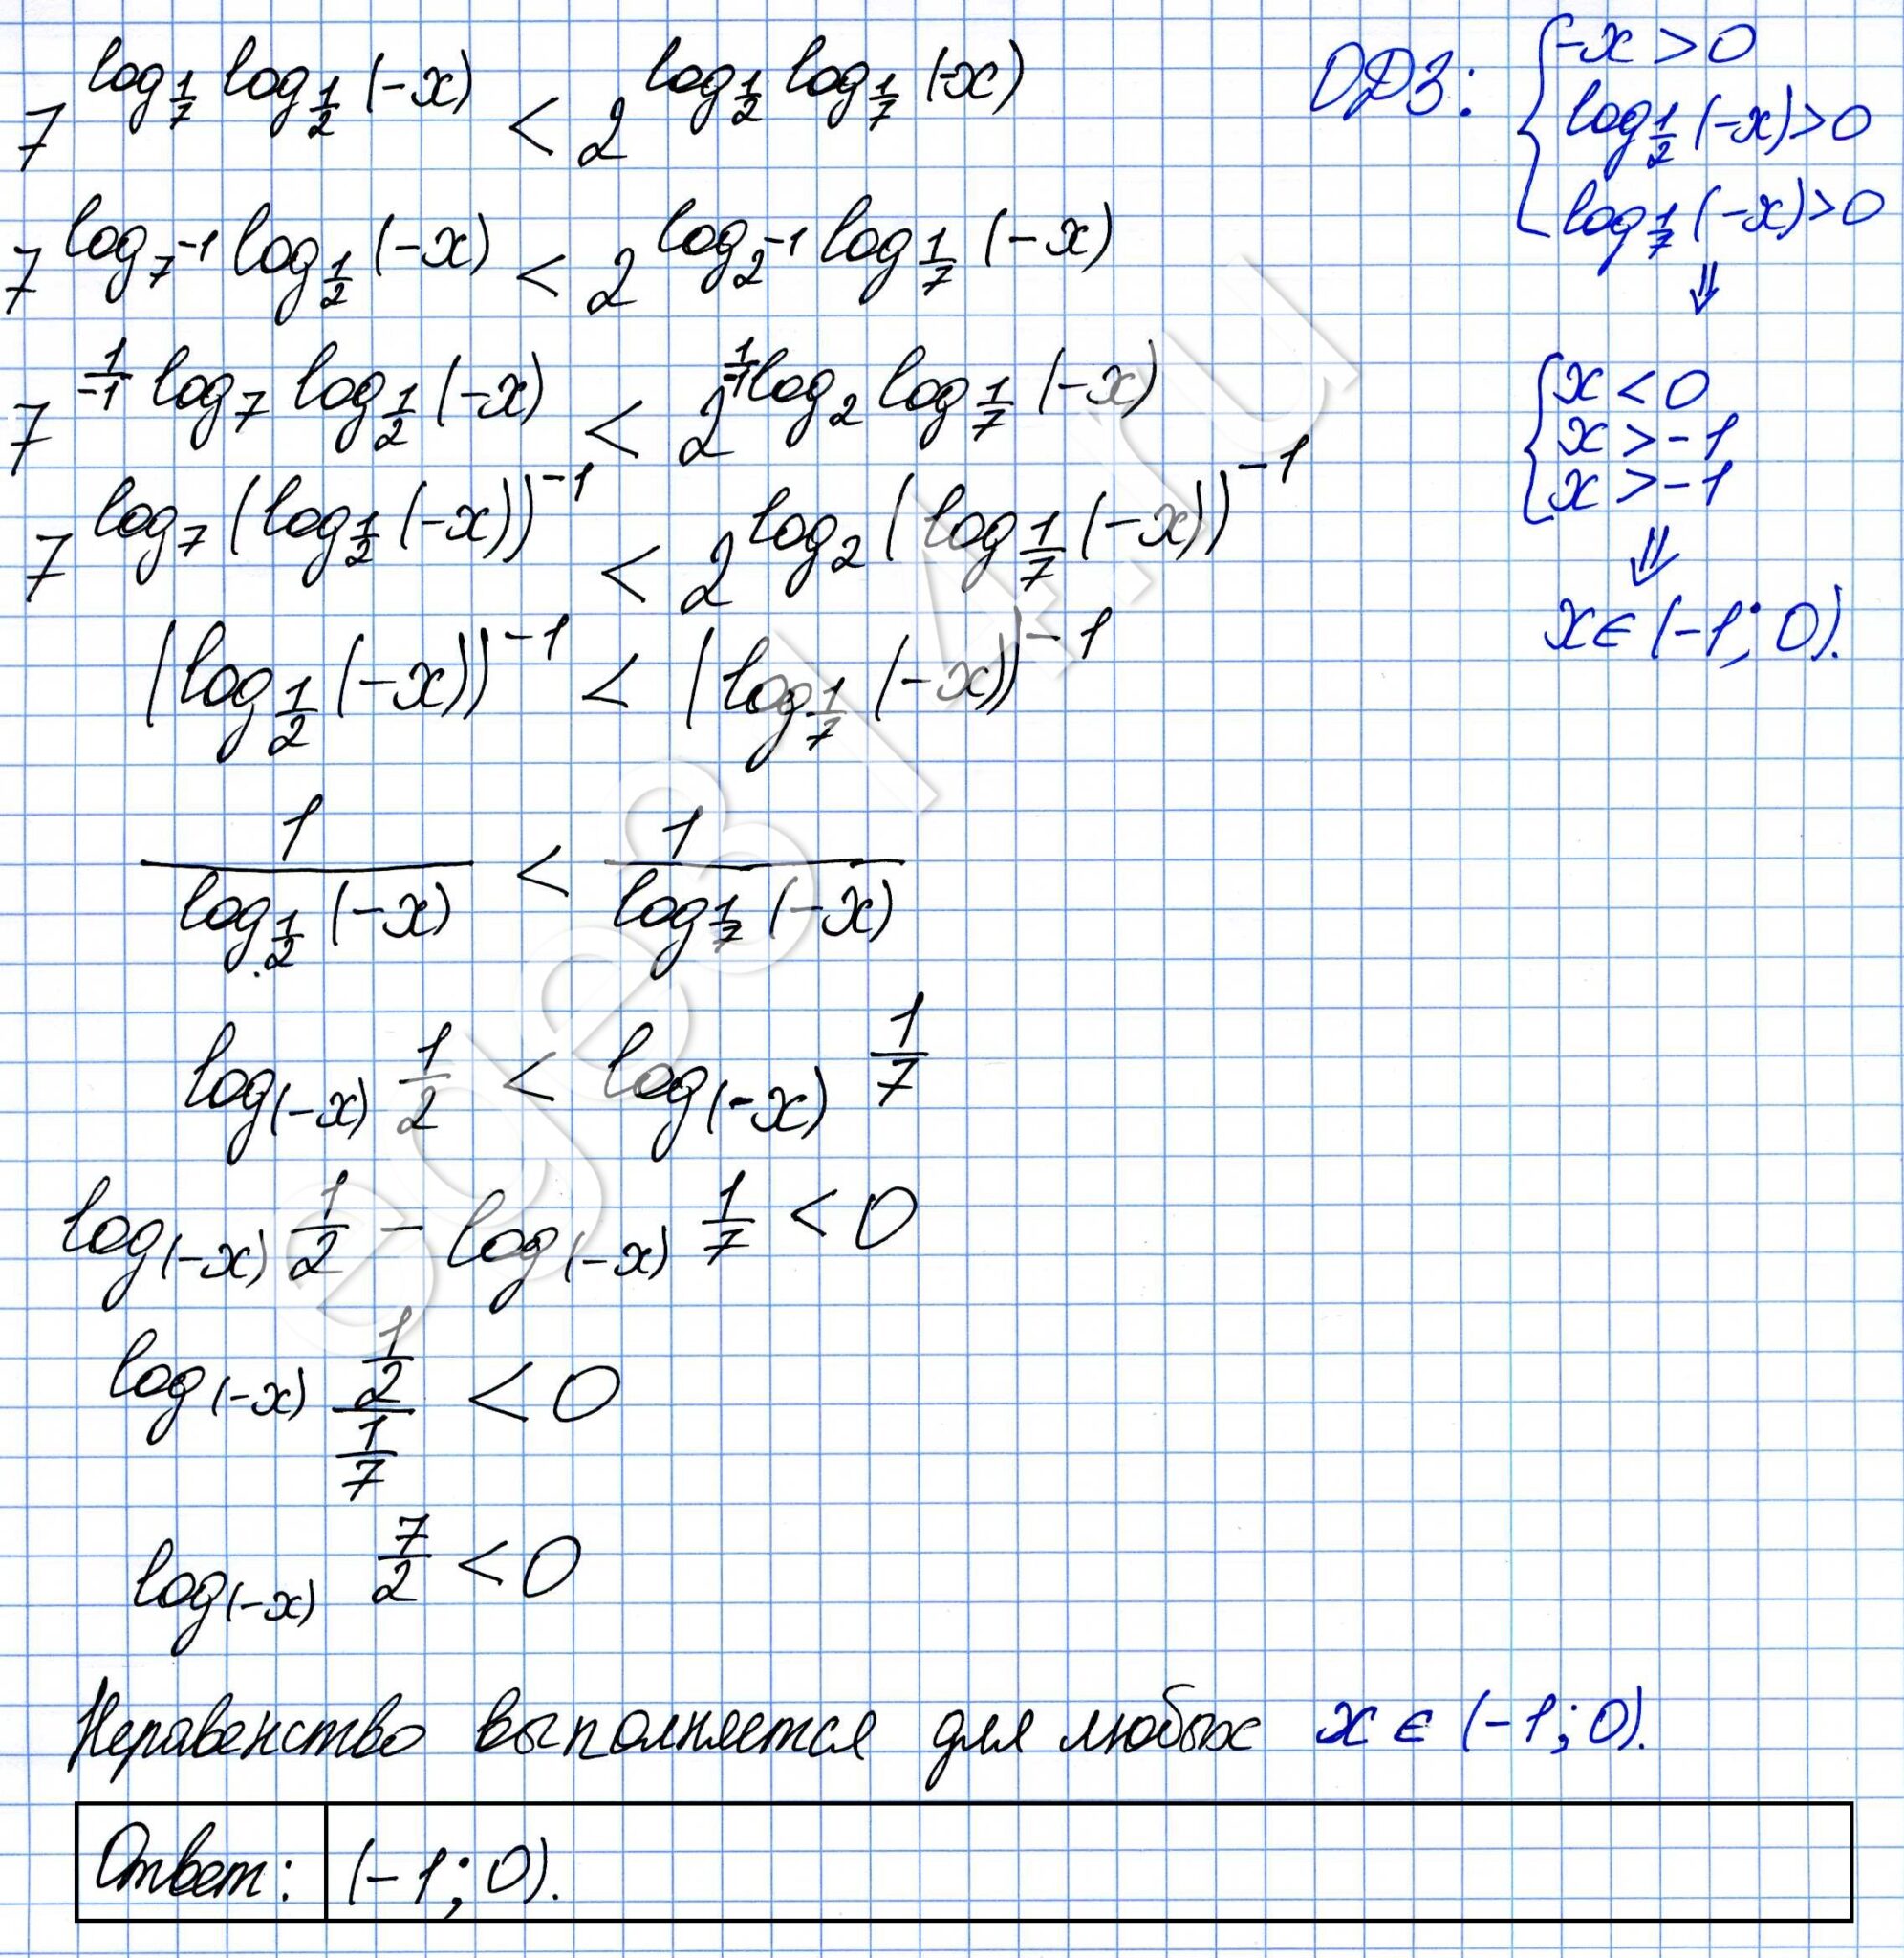 7^{log_{1/7} log_{1/2} (-x)} < 2^{log_{1/2} log_{1/7} (-x)}
ОДЗ: { -x > 0
log_{1/2} (-x) > 0
log_{1/7} (-x) > 0
⇓
{ x < 0
x > -1
x > -1
⇓
x ∈ (-1; 0).
7^{log_{7^{-1}} log_{1/2} (-x)} < 2^{log_{2^{-1}} log_{1/7} (-x)}
7^{\frac{1}{-1} log_7 log_{1/2} (-x)} < 2^{\frac{1}{-1} log_2 log_{1/7} (-x)}
7^{log_7 (log_{1/2} (-x))^{-1}} < 2^{log_2 (log_{1/7} (-x))^{-1}}
(log_{1/2} (-x))^{-1} < (log_{1/7} (-x))^{-1}
\frac{1}{log_{1/2} (-x)} < \frac{1}{log_{1/7} (-x)}
log_{(-x)} \frac{1}{2} < log_{(-x)} \frac{1}{7}
log_{(-x)} \frac{1}{2} - log_{(-x)} \frac{1}{7} < 0
log_{(-x)} \frac{\frac{1}{2}}{\frac{1}{7}} < 0
log_{(-x)} \frac{7}{2} < 0
Неравенство выполняется для любых x ∈ (-1; 0).
Ответ: (-1; 0).
ege314.ru